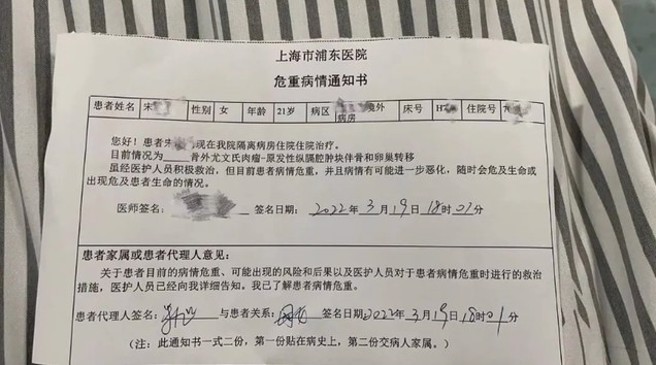 上海市浦东医院
危重病情通知书
患者姓名 宋 性别 女 年龄 21岁 病区 外病房 床号 H 住院号
您好!患者宋 现在我院隔离病房住院住院治疗。
目前情况为____骨外尤文氏肉瘤-原发性纵膈腔肿块伴骨和卵巢转移
虽经医护人员积极救治,但目前患者病情危重,并且病情有可能进一步恶化,随时会危及生命或
出现危及患者生命的情况。
医师签名: 签名日期: 2022年3月19日18时01分
患者家属或患者代理人意见:
关于患者目前的病情危重、可能出现的风险和后果以及医护人员对于患者病情危重时进行的救治
措施,医护人员已经向我详细告知。我已了解患者病情危重。
患者代理人签名: 与患者关系: 签名日期2022年3月19日18时01分
(注:此通知书一式二份,第一份贴在病史上,第二份交病人家属。)